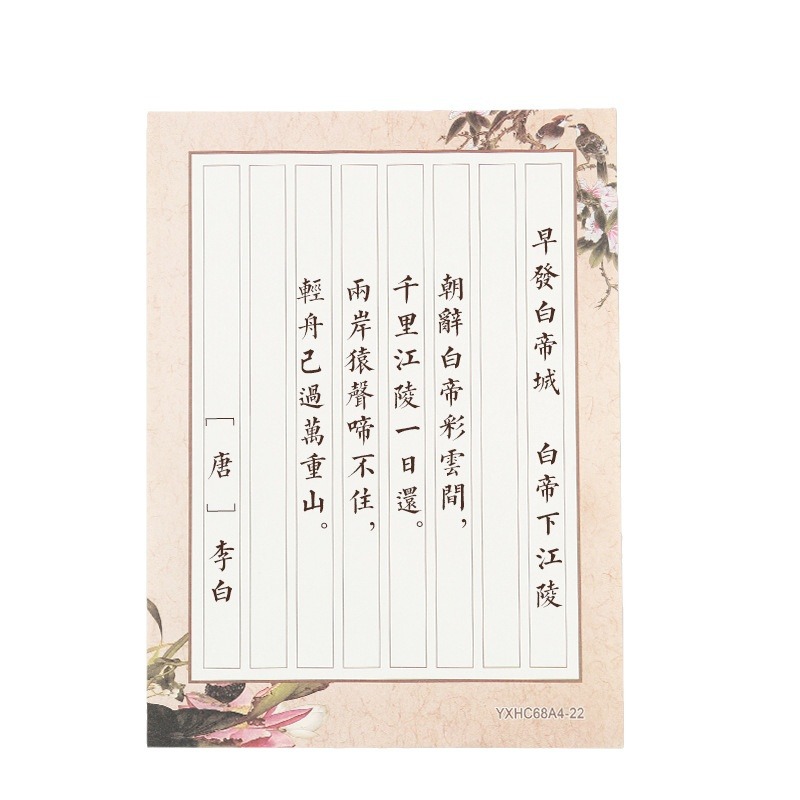 早發白帝城　白帝下江陵
朝辭白帝彩雲間，
千里江陵一日還。
兩岸猿聲啼不住，
輕舟已過萬重山。
［唐］李白
YXHC68A4-22